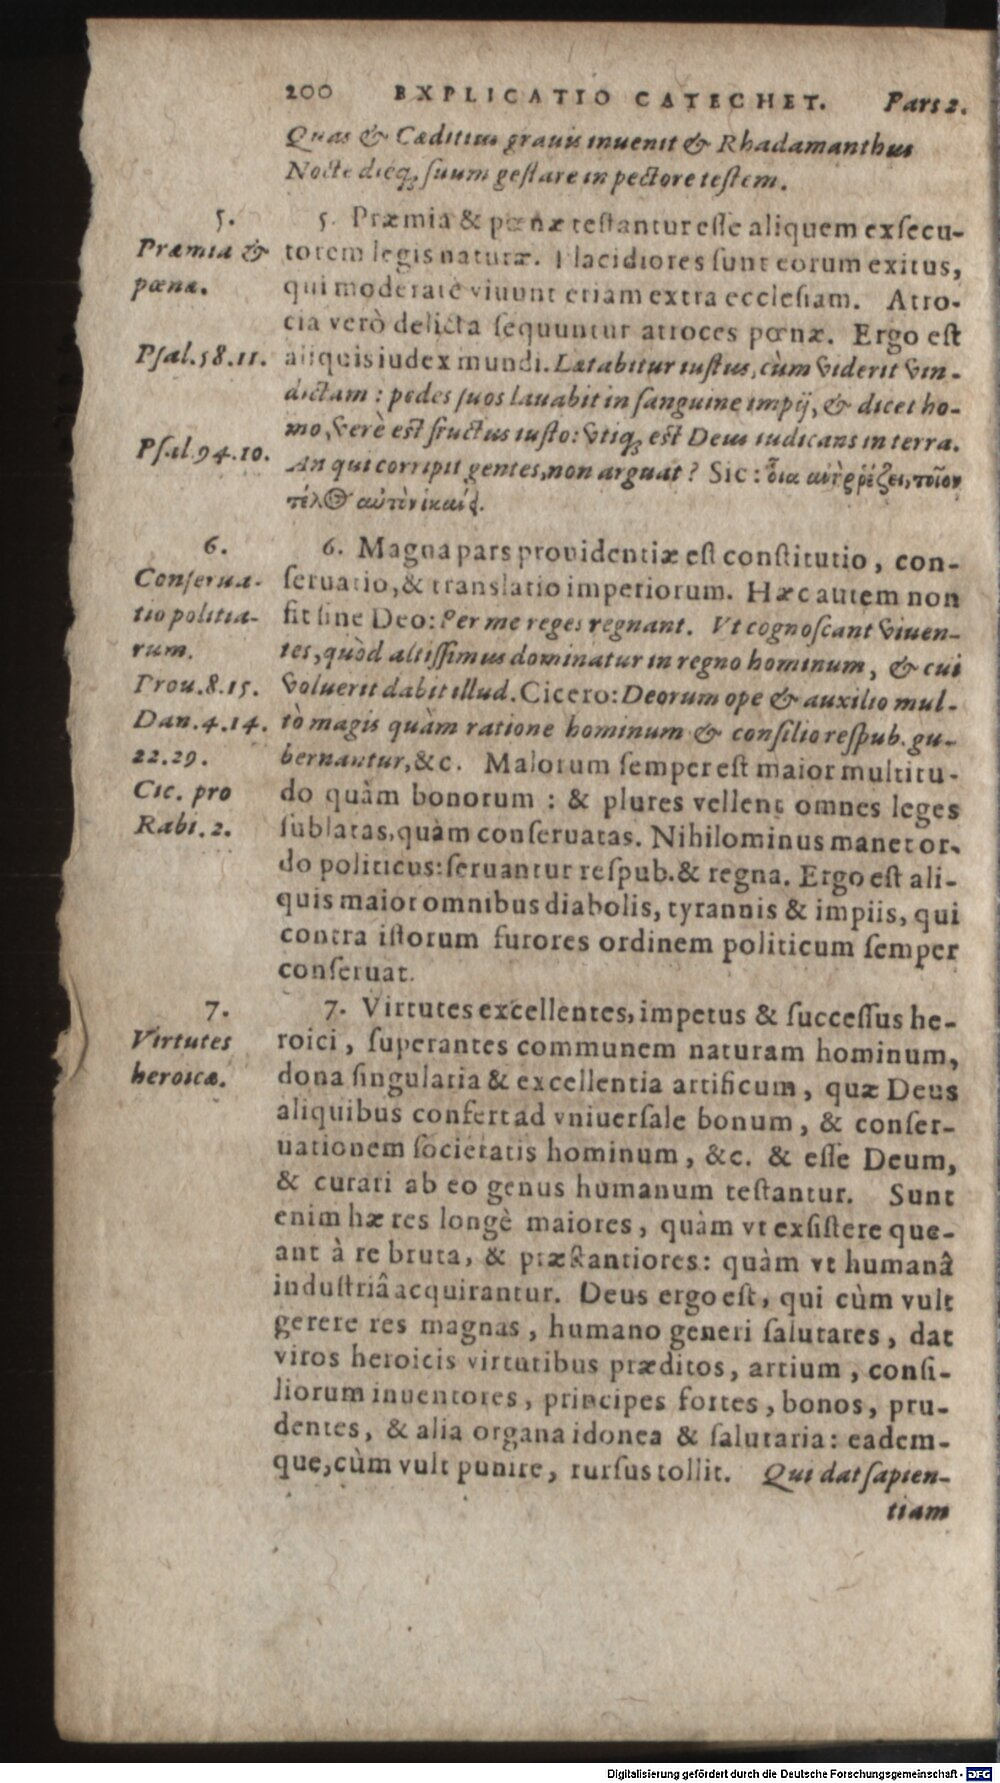 200 EXPLICATIO CATECHET. Pars 2.
Quas & Cæditius grauis inuenit & Rhadamanthus
Nocte dieq; suum gestare in pectore testem.
5.
Præmia &
pœnæ.
5. Præmia & pœnæ testantur esse aliquem exsecu-
torem legis naturæ. Placidiores sunt eorum exitus,
qui moderatè viuunt etiam extra ecclesiam. Atro-
cia verò delicta sequuntur atroces pœnæ. Ergo est
Psal. 58. 11.
aliquis iudex mundi. Lætabitur iustus, cùm viderit vin-
dictam: pedes suos lauabit in sanguine impij, & dicet ho-
mo, verè est fructus iusto: vtiq; est Deus iudicans in terra.
Psal. 94. 10.
An qui corripit gentes, non arguat? Sic:
6.
Conserua-
tio politia-
rum.
Prou. 8. 15.
Dan. 4. 14.
22. 29.
Cic. pro
Rabi. 2.
6. Magna pars prouidentiæ est constitutio, con-
seruatio, & translatio imperiorum. Hæc autem non
fit sine Deo: Per me reges regnant. Vt cognoscant viuen-
tes, quòd altissimus dominatur in regno hominum, & cui
voluerit dabit illud. Cicero: Deorum ope & auxilio mul-
tò magis quàm ratione hominum & consilio respub. gu-
bernantur, &c. Malorum semper est maior multitu-
do quàm bonorum: & plures vellent omnes leges
sublatas, quàm conseruatas. Nihilominus manet or-
do politicus: seruantur respub. & regna. Ergo est ali-
quis maior omnibus diabolis, tyrannis & impiis, qui
contra istorum furores ordinem politicum semper
conseruat.
7.
Virtutes
heroicæ.
7. Virtutes excellentes, impetus & successus he-
roici, superantes communem naturam hominum,
dona singularia & excellentia artificum, quæ Deus
aliquibus confert ad vniuersale bonum, & conser-
uationem societatis hominum, &c. & esse Deum,
& curari ab eo genus humanum testantur. Sunt
enim hæ res longè maiores, quàm vt exsistere que-
ant à re bruta, & præstantiores: quàm vt humanâ
industriâ acquirantur. Deus ergo est, qui cùm vult
gerere res magnas, humano generi salutares, dat
viros heroicis virtutibus præditos, artium, consi-
liorum inuentores, principes fortes, bonos, pru-
dentes, & alia organa idonea & salutaria: eadem-
que, cùm vult punire, rursus tollit. Qui dat sapien-
tiam
Digitalisierung gefördert durch die Deutsche Forschungsgemeinschaft - DFG